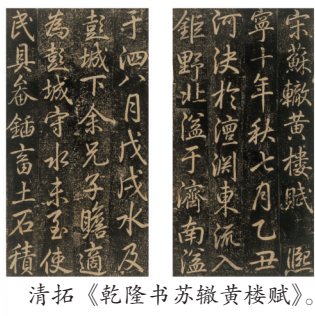 宗蘇轍黃樓賦 熙
寧十年秋七月乙丑
河決於澶淵東流入
鉅野北溢于濟南溢
于泗八月戊戌水及
彭城下余兄子瞻適
為彭城守水未至使
民具畚鍤畜土石積
清拓《乾隆书苏辙黄楼赋》。